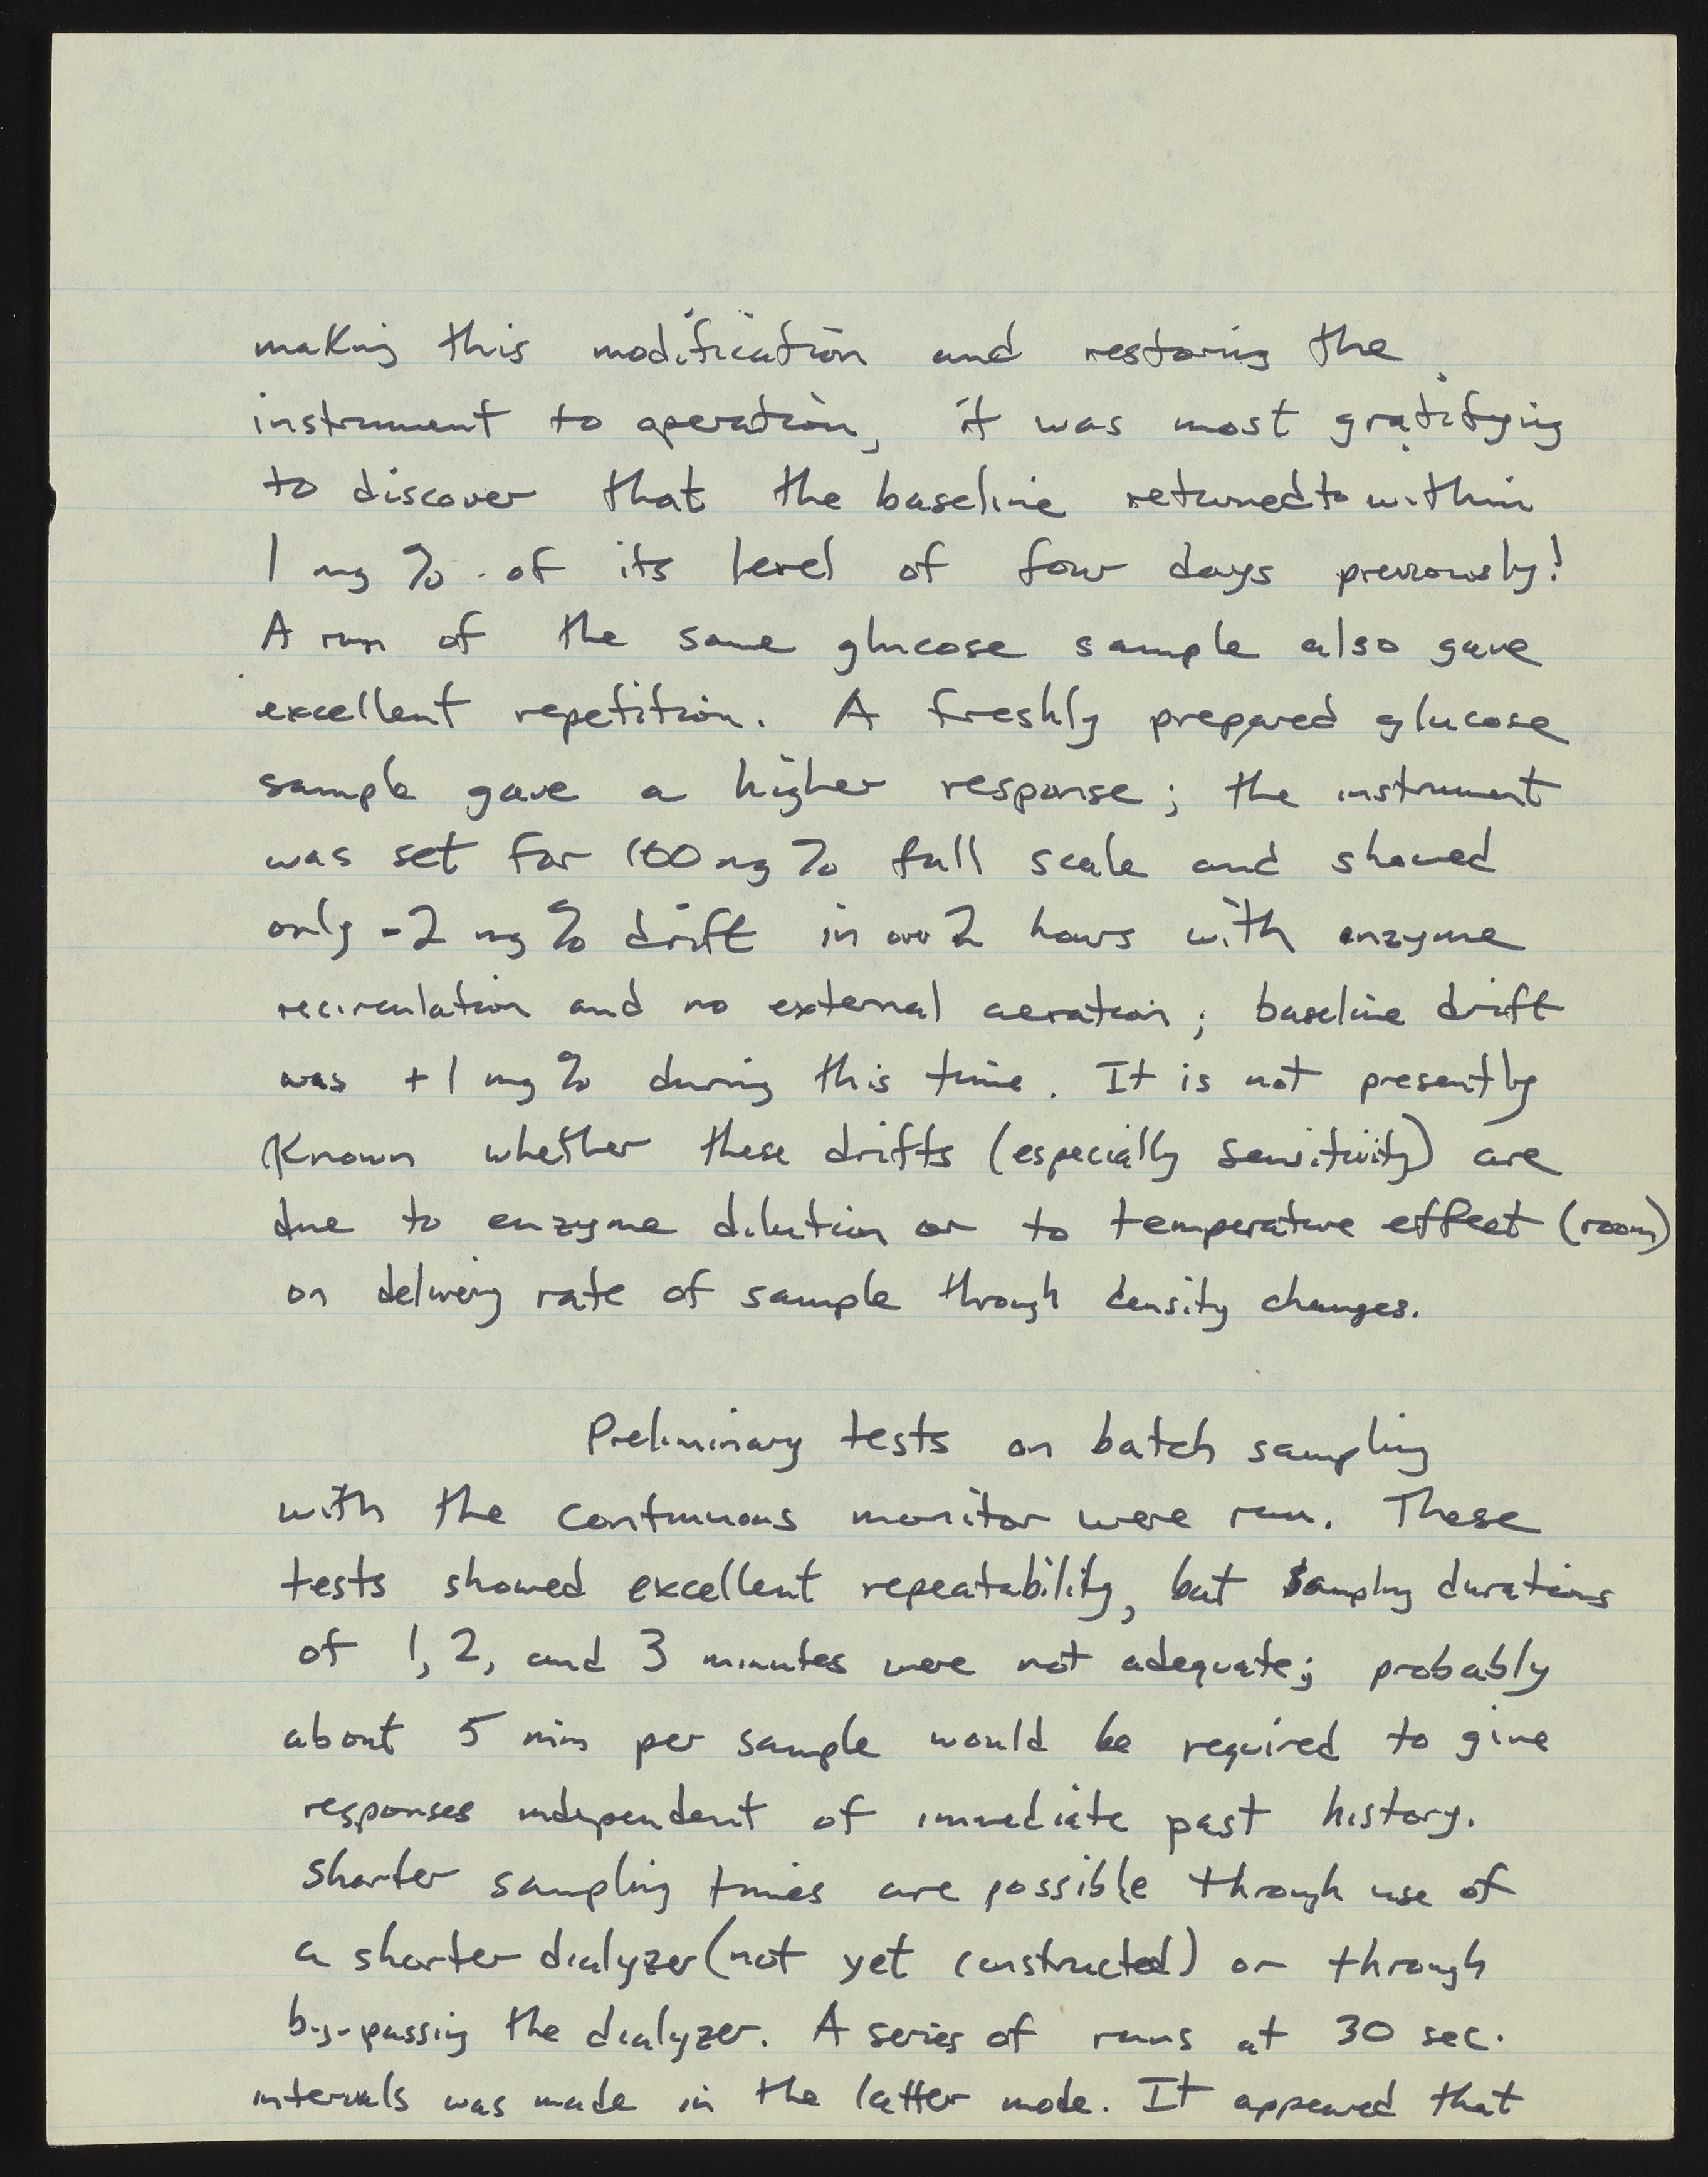 making this modification and restoring the
instrument to operation, it was most gratifying
to discover that the baseline returned to within
1 mg % of its level of four days previously!
A run of the same glucose sample also gave
excellent repetition. A freshly prepared glucose
sample gave a higher response; the instrument
was set for 100 mg % full scale and showed
only -2 mg % drift in over 2 hours with enzyme
recirculation and no external aeration; baseline drift
was +1 mg % during this time. It is not presently
known whether these drifts (especially sensitivity) are
due to enzyme dilution or to temperature effect (room)
on delivery rate of sample through density changes.
Preliminary tests on batch sampling
with the continuous monitor were run. These
tests showed excellent repeatability, but sampling durations
of 1, 2, and 3 minutes were not adequate; probably
about 5 min per sample would be required to give
responses independent of immediate past history.
Shorter sampling times are possible through use of
a shorter dialyzer (not yet constructed) or through
by-passing the dialyzer. A series of runs at 30 sec.
intervals was made in the latter mode. It appeared that